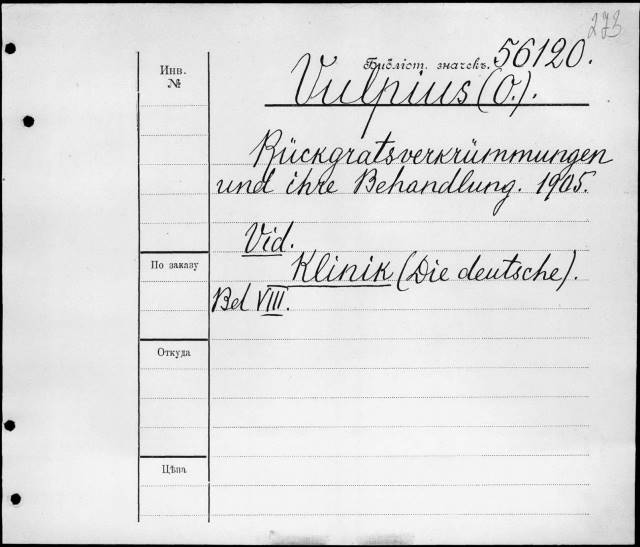 273
Инв.
№
Библіот. значекъ. 56120.
Vulpius (O.).
Rückgratsverkrümmungen
und ihre Behandlung. 1905.
Vid.
По заказу
Klinik (Die deutsche).
Bd VIII.
Откуда
Цѣна